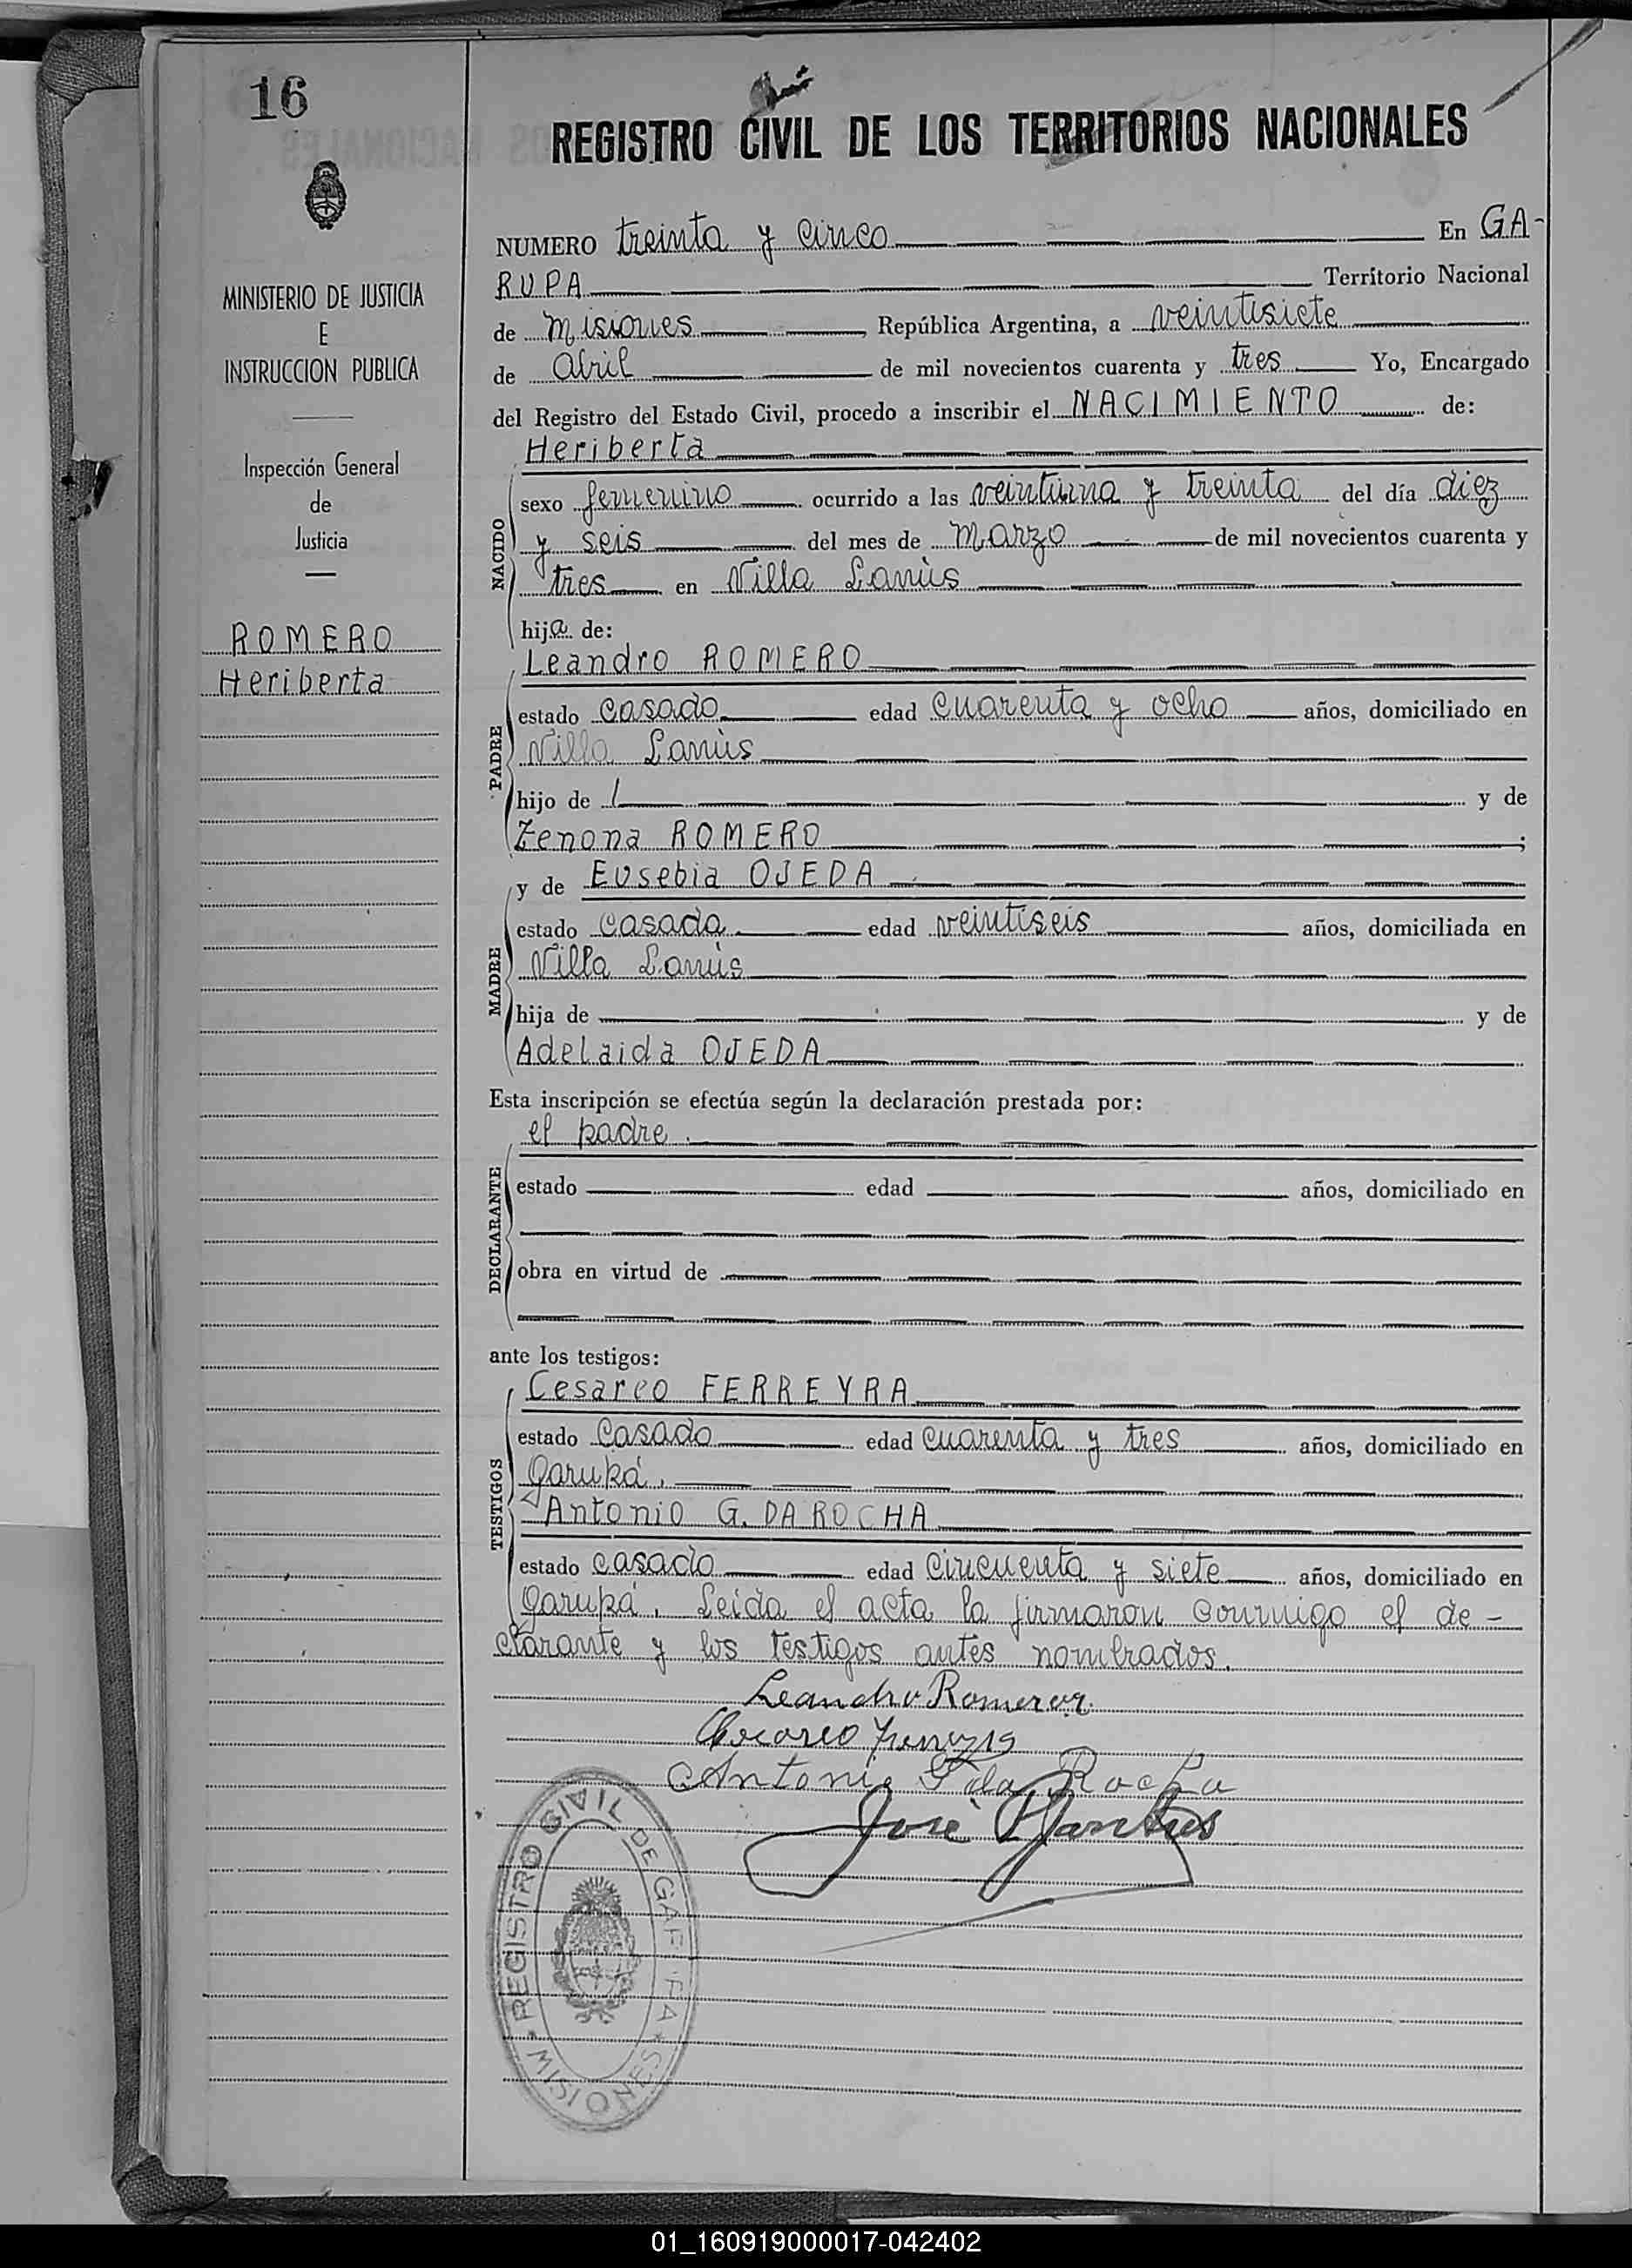 16
REGISTRO CIVIL DE LOS TERRITORIOS NACIONALES
MINISTERIO DE JUSTICIA
E
INSTRUCCION PUBLICA
Inspección General
de
Justicia
ROMERO
Heriberta
NUMERO treinta y cinco En GA-
RUPA Territorio Nacional
de Misiones, República Argentina, a veintisiete
de Abril de mil novecientos cuarenta y tres Yo, Encargado
del Registro del Estado Civil, procedo a inscribir el NACIMIENTO de:
Heriberta
NACIDO
sexo femenino ocurrido a las veintiuna y treinta del día diez
y seis del mes de Marzo de mil novecientos cuarenta y
tres en Villa Lanùs
hija de:
Leandro ROMERO
PADRE
estado casado edad cuarenta y ocho años, domiciliado en
Villa Lanùs
hijo de y de
Zenona ROMERO ;
y de Eusebia OJEDA
MADRE
estado casada edad veintiseis años, domiciliada en
Villa Lanùs
hija de y de
Adelaida OJEDA
Esta inscripción se efectúa según la declaración prestada por:
el padre.
DECLARANTE
estado edad años, domiciliado en
obra en virtud de
ante los testigos:
Cesareo FERREYRA
TESTIGOS
estado casado edad cuarenta y tres años, domiciliado en
Garupá.
Antonio G. DA ROCHA
estado casado edad cincuenta y siete años, domiciliado en
Garupá. Leida el acta la firmaron conmigo el de-
clarante y los testigos antes nombrados.
Leandro Romero
Antonio G da Rocha
José
REGISTRO CIVIL DE GARUPA * MISIONES *
01_160919000017-042402